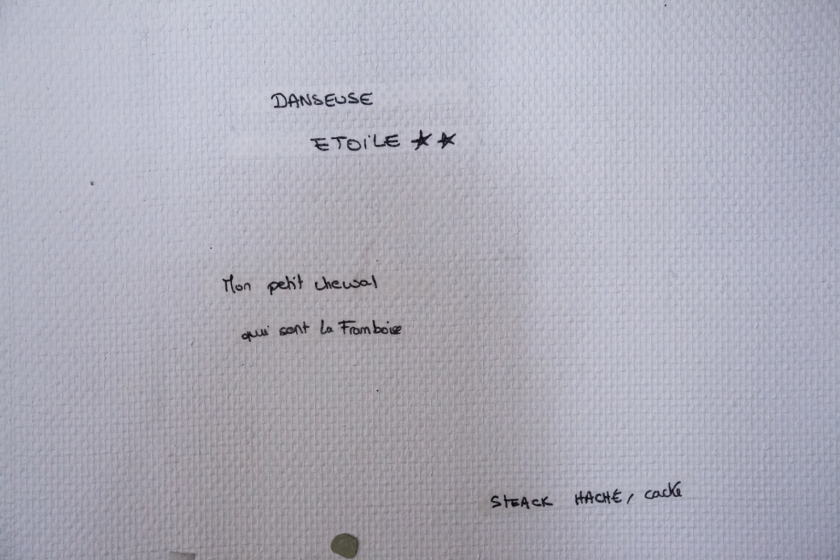 DANSEUSE
ETOILE ★★
Mon petit cheval
qui sent la Framboise
STEACK HACHÉ, caché